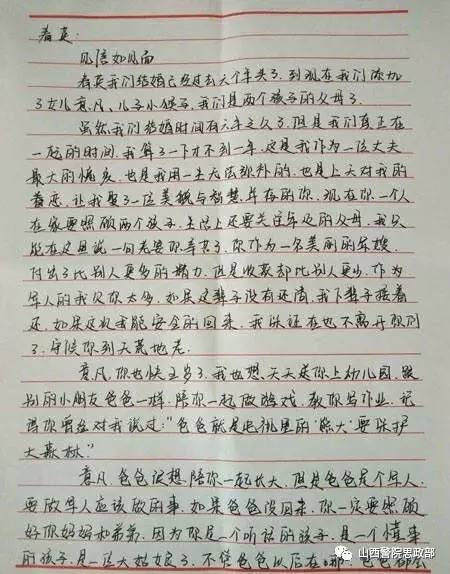 春英:
见信如见面
春英我们结婚已经过去六个年头了.到现在我们添加
了女儿意凡、儿子小侯子.我们是两个孩子的父母了.
虽然我们结婚时间有六年之久了.但是我们真正在
一起的时间.我算了一下才不到一年.这是我作为一位丈夫
最大的愧疚.也是我用一生无法弥补的.也是上天对我的
眷恋.让我娶了一位美貌与智慧并存的你.现在你一个人
在家要照顾两个孩子.生活上还要关注年迈的父母.我只
能在这里说一句老婆你辛苦了.你作为一名美丽的军嫂.
付出了比别人更多的精力.但是收获却比别人更少.作为
军人的我欠你太多.如果这辈子没有还清.我下辈子接着
还.如果这次去能安全的回来.我保证在也不离开你们
了.守候你到天荒地老.
意凡.你也快五岁了.我也想.天天送你上幼儿园.跟
别的小朋友爸爸一样.陪你一起做游戏.教你写作业.记
得你曾经对我说过:"爸爸就是电视里的'熊大'要保护
大森林."
意凡.爸爸很想陪你一起长大.但是爸爸是个军人.
要做军人应该做的事.如果爸爸没回来.你一定要照顾
好你妈妈和弟弟.因为你是一个听话的孩子.是一个懂事
的孩子.是一位大姑娘了.不管爸爸以后在哪.爸爸都会
山西警院思政部